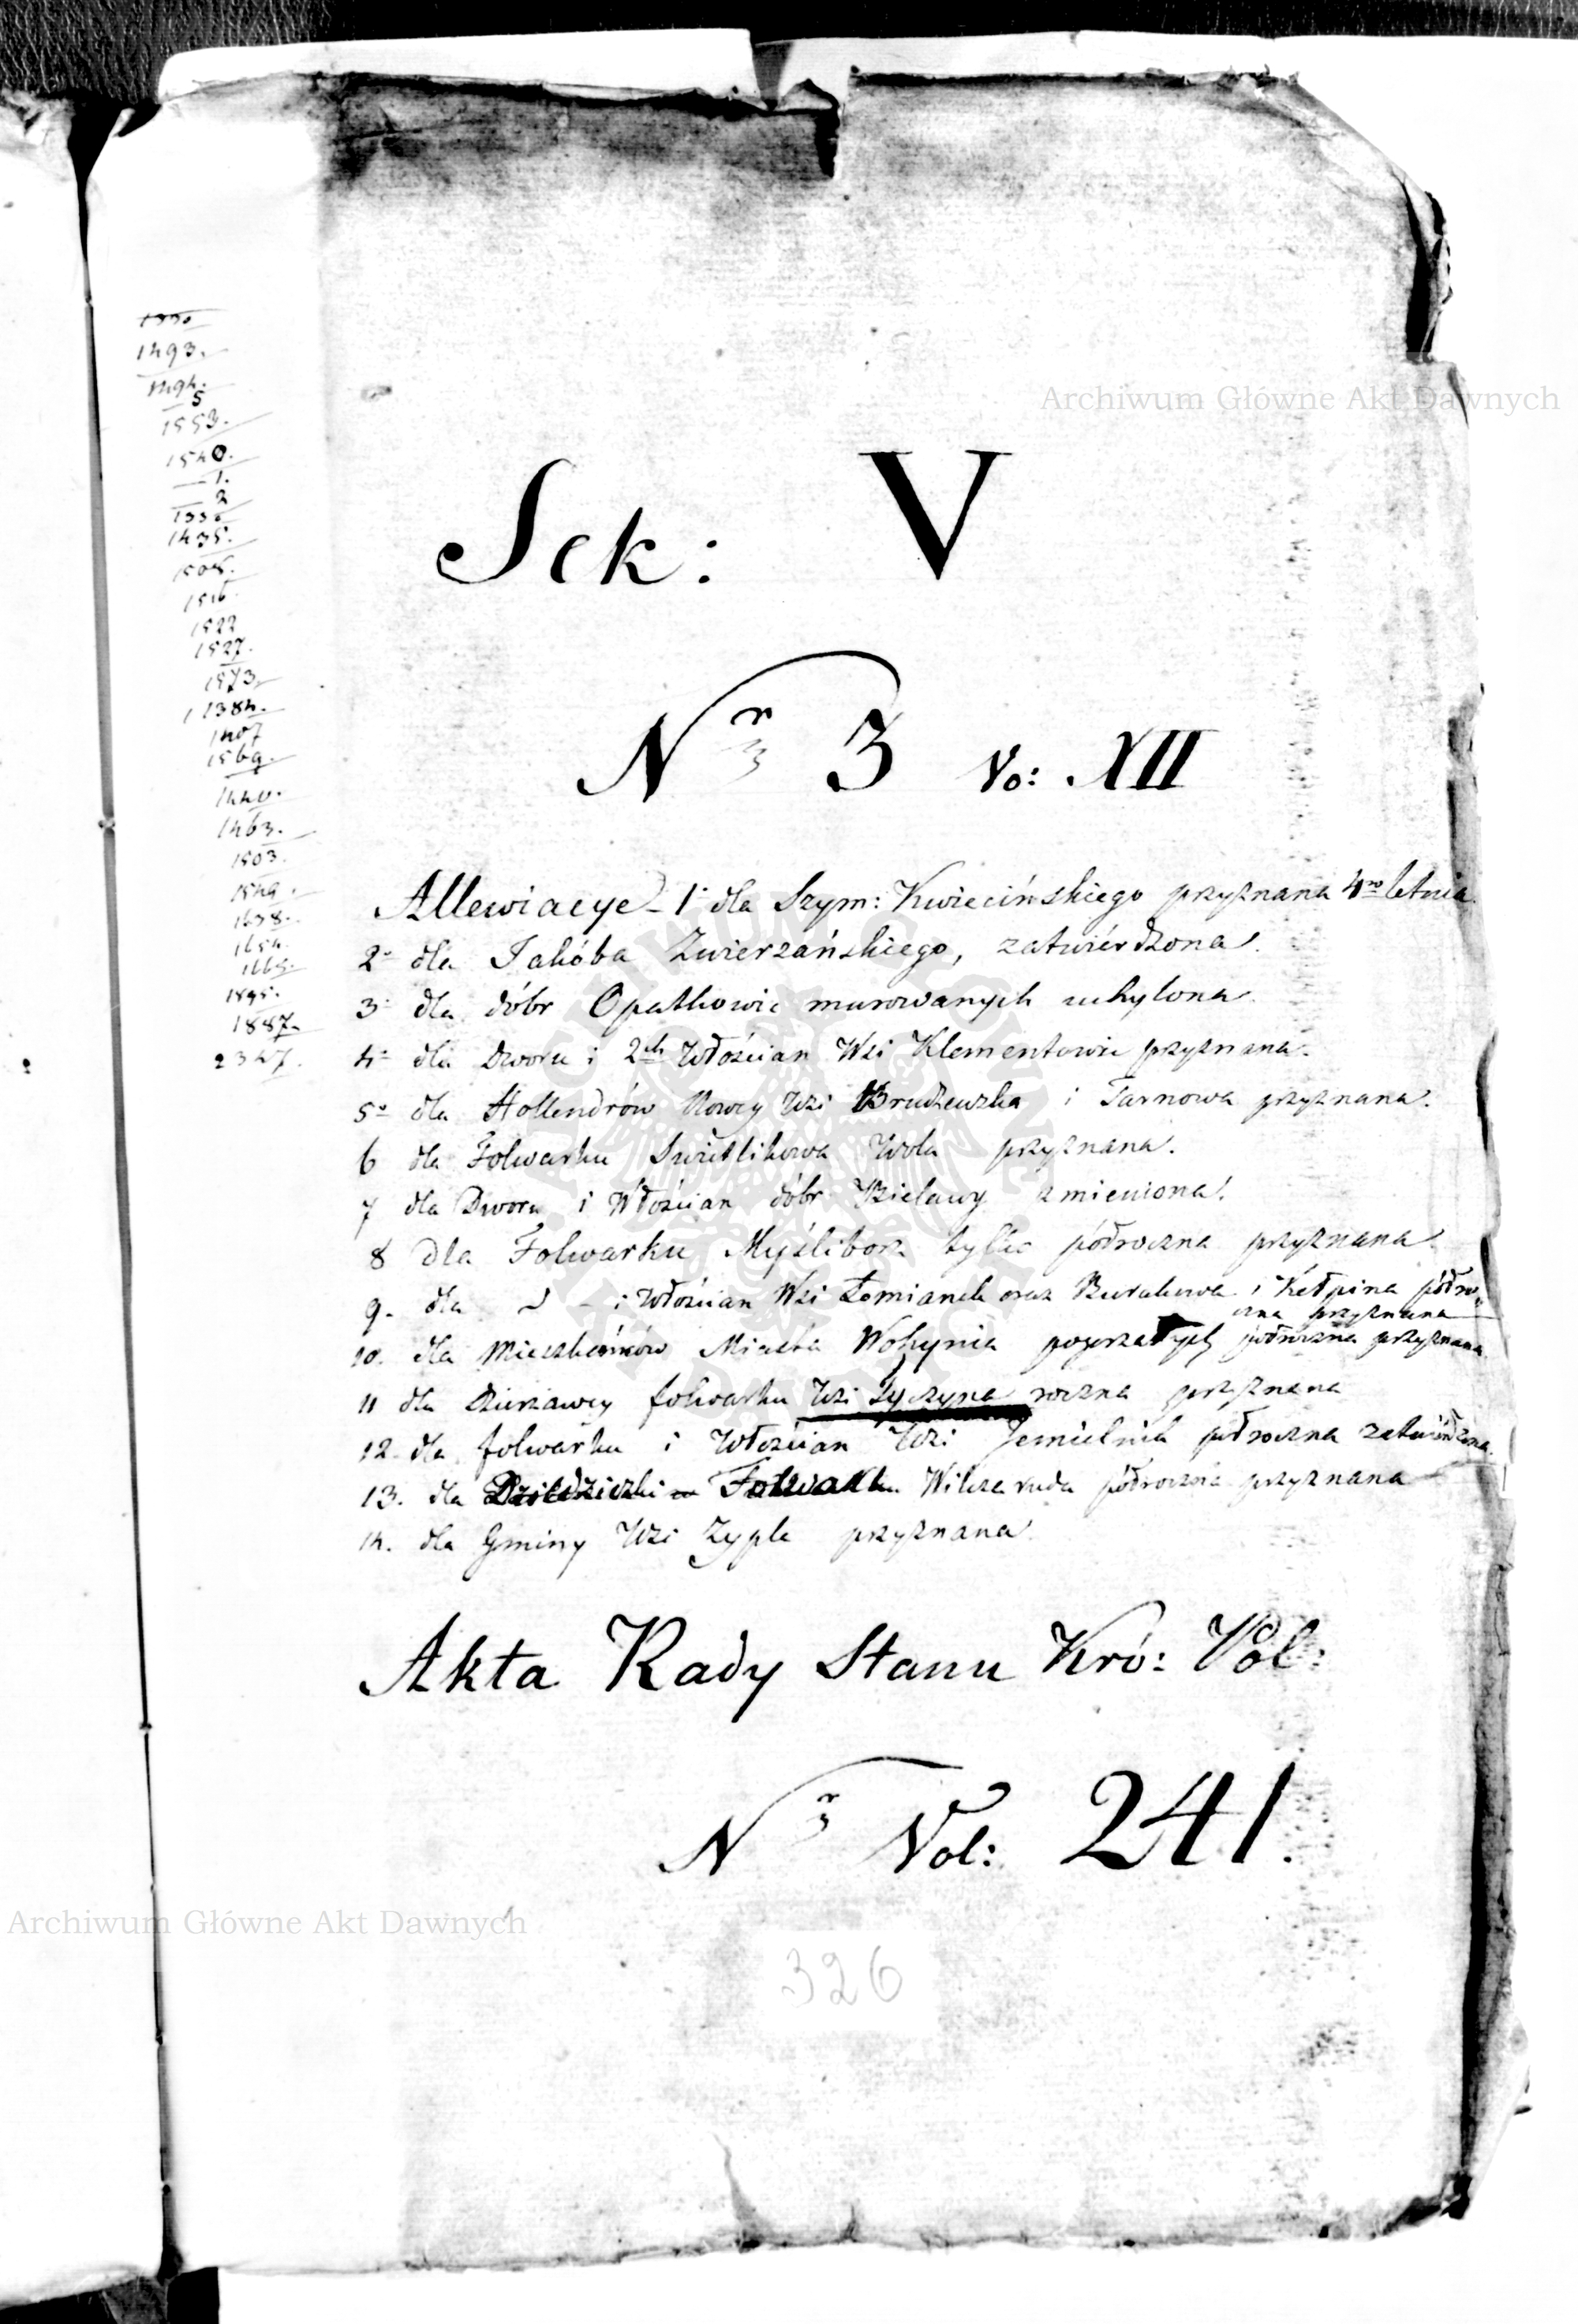 1493.
1494.
5
1553.
1540.
1.
2
1435.
1516
1522
1527.
1573
1384.
1407
1569.
1440.
1463.
1503.
1549.
1638.
1654.
1665.
1895.
1887.
2347.
Archiwum Główne Akt Dawnych
Sek: V
Nr 3 Vo: XII
Allewiacye - 1o dla Szym: Kwiecińskiego przyznana 4ro letnia
2o dla Jakóba Zwierzańskiego, zatwierdzona.
3o dla dóbr Opatkowic murowanych uchylona.
4o dla Dworu i 2ch Włościan Wsi Klementowic przyznana.
5o dla Hollendrów Nowey Wsi Brudzewska i Tarnowa przyznana.
6 dla Folwarku Swietlikowa Wola przyznana.
7 dla Dworu i Włościan dóbr Bielawy zmieniona.
8 dla Folwarku Myślibosz tylko półroczna przyznana
9. dla - i Włościan Wsi Łomianek oraz Burakowa i Kełpina półro-
czna przyznana
10. dla Mieszkańców Miasta Wohynia pogorzałych półroczna przyznana
11 dla Dzierżawcy folwarku Wsi Tyczyna roczna przyznana
12. dla folwarku i Włościan Wsi Jemielnik półroczna zatwierdzona.
13. dla Dziedziczki Folwarku Wilczaruda półroczna przyznana
14. dla Gminy Wsi Zyple przyznana
Akta Rady Stanu Kró: Pol:
Nr Vol: 241.
Archiwum Główne Akt Dawnych
326